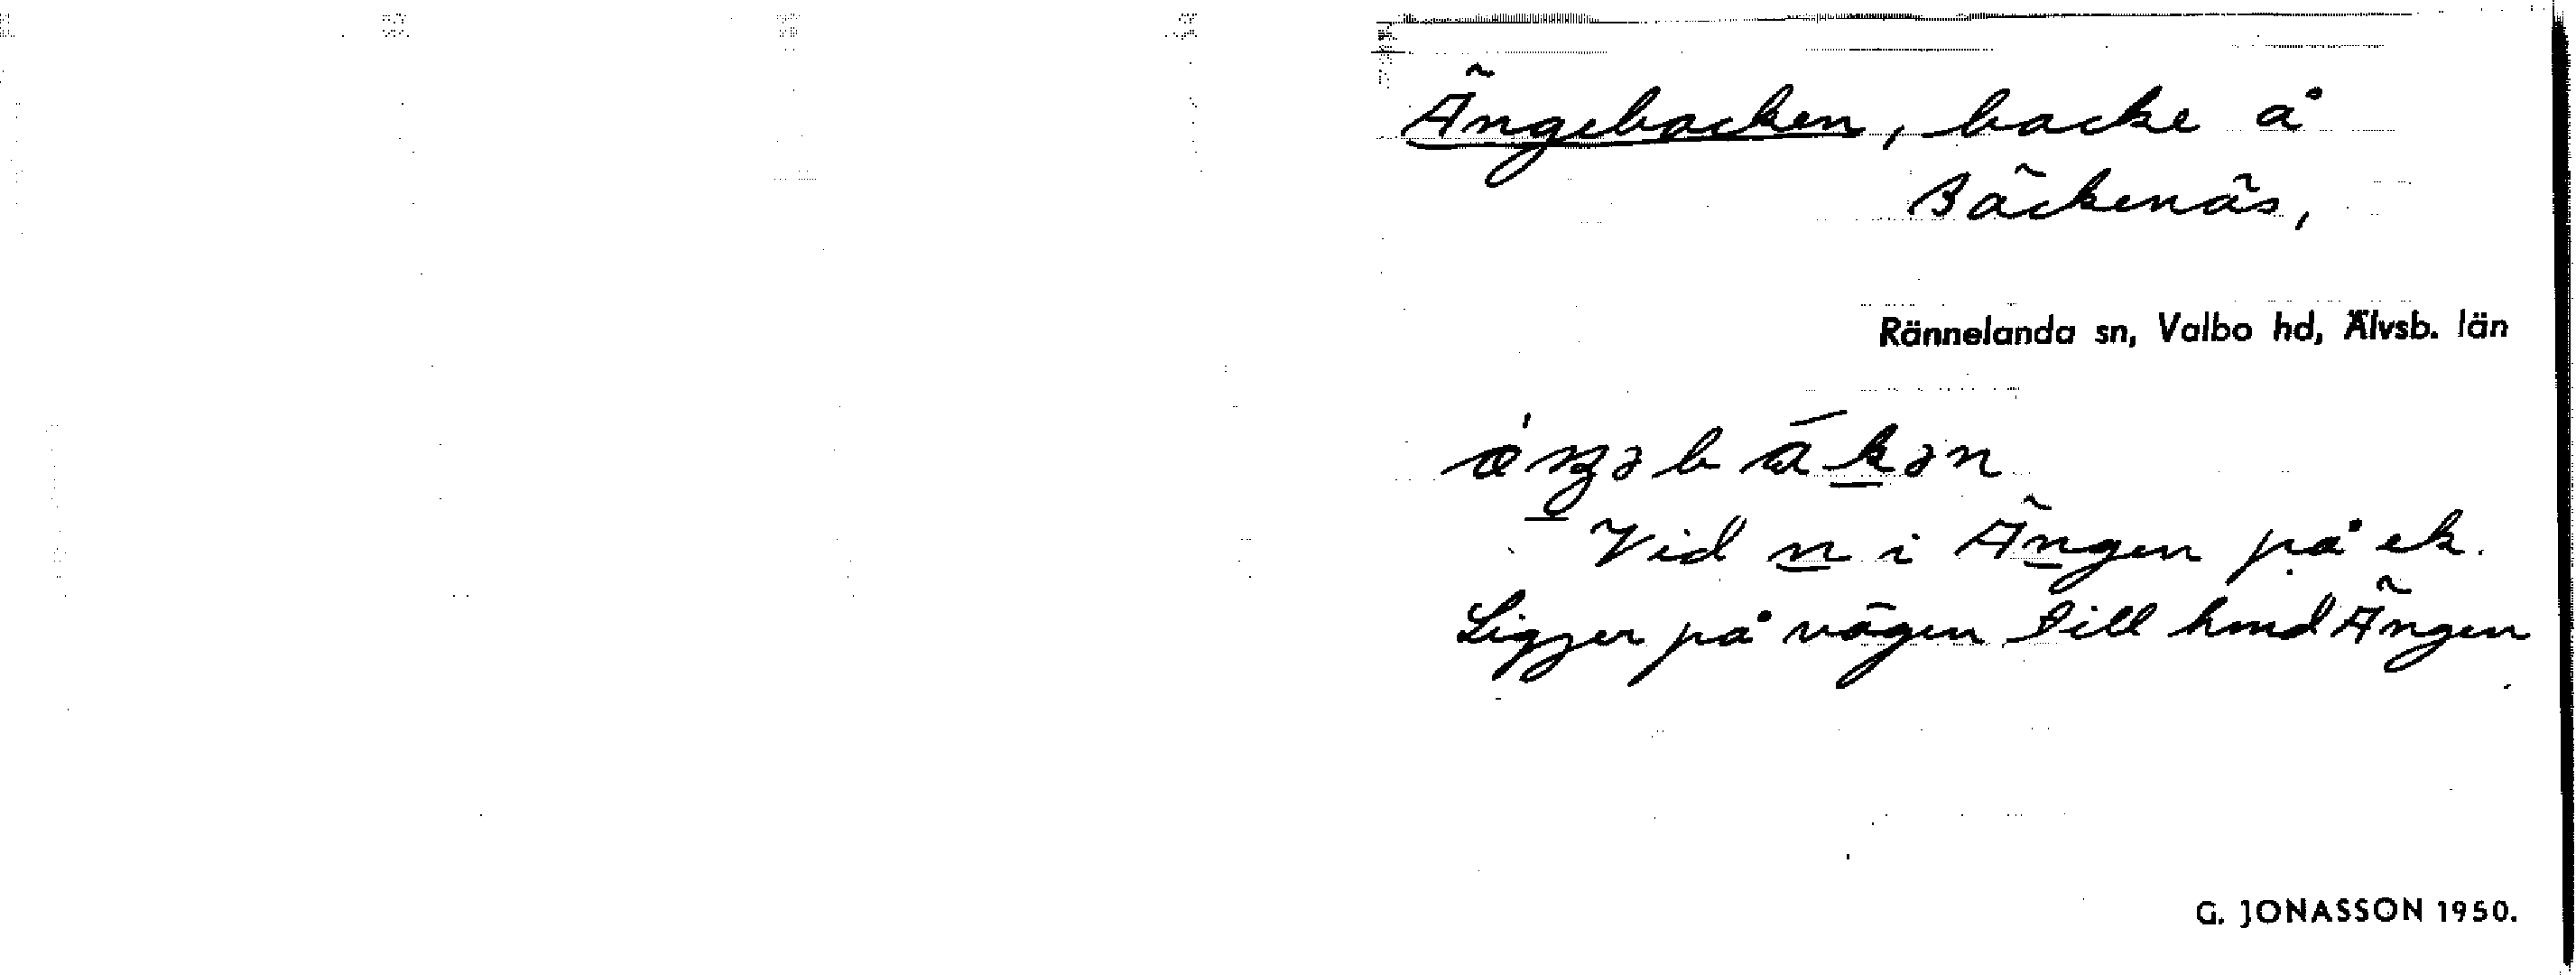 Ängebacken, backe å
Bäckenäs,
Rännelanda sn, Valbo hd, Älvsb. län
Vid n i Ängen på ek.
Ligger på vägen till hmd Ängen
G. JONASSON 1950.